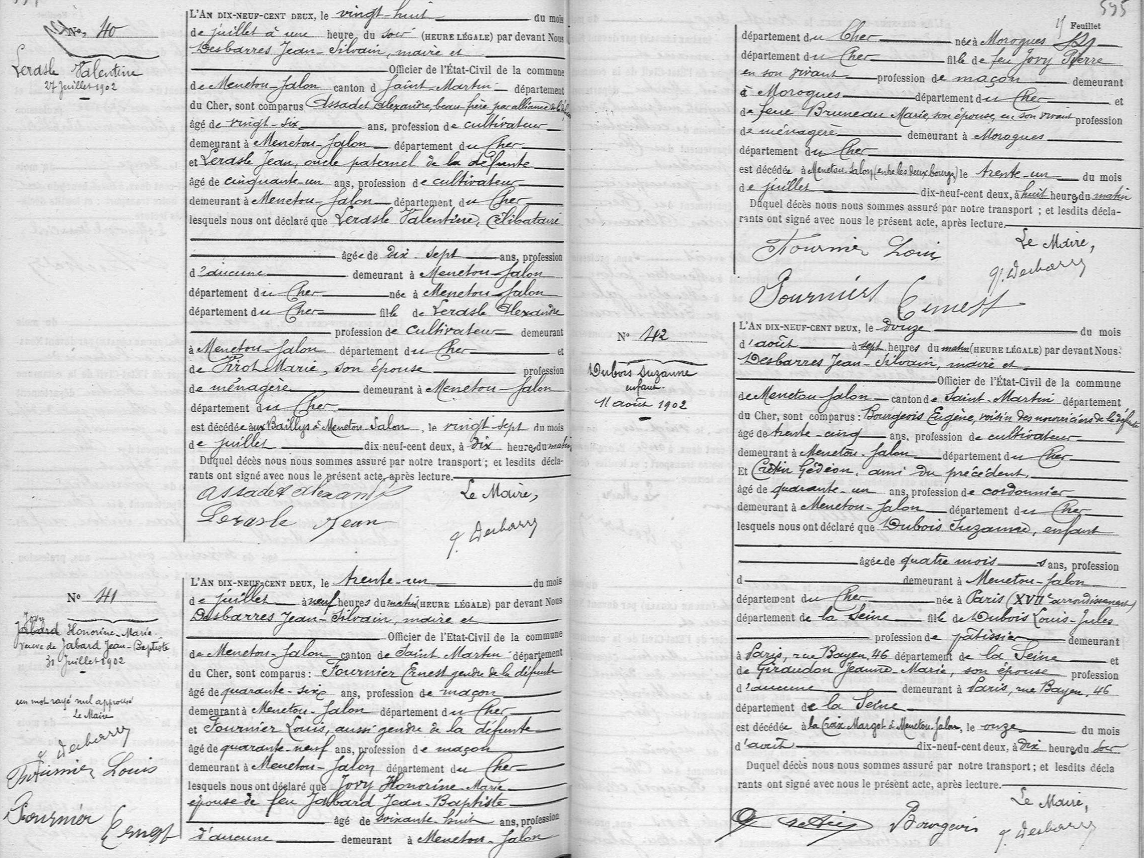 N° 40
Lerasle Valentine
27 Juillet 1902
L'AN DIX-NEUF-CENT DEUX, le vingt-huit du mois
de juillet à une heure, du soir (HEURE LÉGALE) par devant Nous
Desbarres Jean-Silvain, maire et
Officier de l'État-Civil de la commune
de Menetou-Salon canton d Saint-Martin département
du Cher, sont comparus Assadet Alexandre, beau-frère par alliance de la
âgé de vingt-six ans, profession de cultivateur
demeurant à Menetou-Salon département du Cher
et Lerasle Jean, oncle paternel de la défunte
âgé de cinquante-un ans, profession de cultivateur
demeurant à Menetou-Salon département du Cher
lesquels nous ont déclaré que Lerasle Valentine, Célibataire
âgée de dix-sept ans, profession
d'aucune demeurant à Menetou-Salon
département du Cher née à Menetou-Salon
département du Cher fille de Lerasle Alexandre
profession de cultivateur demeurant
à Menetou-Salon département du Cher et
de Pirot Marie, son épouse profession
de ménagère demeurant à Menetou-Salon
département du Cher
est décédée aux Baillys à Menetou-Salon, le vingt-sept du mois
de juillet dix-neuf-cent deux, à dix heures du matin
Duquel décès nous nous sommes assuré par notre transport ; et lesdits décla-
rants ont signé avec nous le présent acte, après lecture.
Le Maire,
Lerasle Jean
N° 41
Jovy
Jabard Honorine-Marie
veuve de Jabard Jean-Baptiste
31 Juillet 1902
un mot rayé nul approuvé
Le Maire
Fournier Louis
Fournier
Ernest
L'AN DIX-NEUF-CENT DEUX, le trente-un du mois
de juillet à neuf heures du matin (HEURE LÉGALE) par devant Nous
Desbarres Jean-Silvain, maire et
Officier de l'État-Civil de la commune
de Menetou-Salon canton de Saint-Martin département
du Cher, sont comparus : Fournier Ernest gendre de la défunte
âgé de quarante-six ans, profession de maçon
demeurant à Menetou-Salon département du Cher
et Fournier Louis, aussi gendre de la défunte
âgé de quarante-neuf ans, profession de maçon
demeurant à Menetou-Salon département du Cher
lesquels nous ont déclaré que Jovy Honorine-Marie
épouse de feu Jabard Jean-Baptiste
âgée de soixante-huit ans, profession
d'aucune demeurant à Menetou-Salon
595
15 Feuillet
département du Cher née à Morogues
département du Cher fille de feu Jovy Pierre
en son vivant profession de maçon demeurant
à Morogues département du Cher et
de feue Bruneau Marie, son épouse, en son vivant profession
de ménagère demeurant à Morogues
département du Cher
est décédée à Menetou-Salon (entre les deux bourgs) le trente-un du mois
de juillet dix-neuf-cent deux, à huit heures du matin
Duquel décès nous nous sommes assuré par notre transport ; et lesdits décla-
rants ont signé avec nous le présent acte, après lecture.
Le Maire,
Fournier Ernest
N° 42
Dubois Suzanne
enfant
11 août 1902
L'AN DIX-NEUF-CENT DEUX, le douze du mois
d'août à sept heures du matin (HEURE LÉGALE) par devant Nous
Desbarres Jean-Silvain, maire et
Officier de l'État-Civil de la commune
de Menetou-Salon canton de Saint-Martin département
du Cher, sont comparus : Bourgeois Eugène, voisin des nourriciers de la défunte
âgé de trente-cinq ans, profession de cultivateur
demeurant à Menetou-Salon département du Cher
Et Crétin Gédéon, ami du précédent,
âgé de quarante-un ans, profession de cordonnier
demeurant à Menetou-Salon département du Cher
lesquels nous ont déclaré que Dubois Suzanne, enfant
âgée de quatre mois ans, profession
d demeurant à Menetou-Salon
département du Cher née à Paris (XVIIe arrondissement)
département de la Seine fille de Dubois Louis-Jules
profession de pâtissier demeurant
à Paris, rue Bayen, 46 département de la Seine et
de Giraudon Jeanne-Marie, son épouse profession
d'aucune demeurant à Paris, rue Bayen, 46
département de la Seine
est décédée à la Croix Margot à Menetou-Salon, le onze
d'août dix-neuf-cent deux, à dix heures du soir
Duquel décès nous nous sommes assuré par notre transport ; et lesdits décla
rants ont signé avec nous le présent acte, après lecture.
Le Maire,
Bourgeois